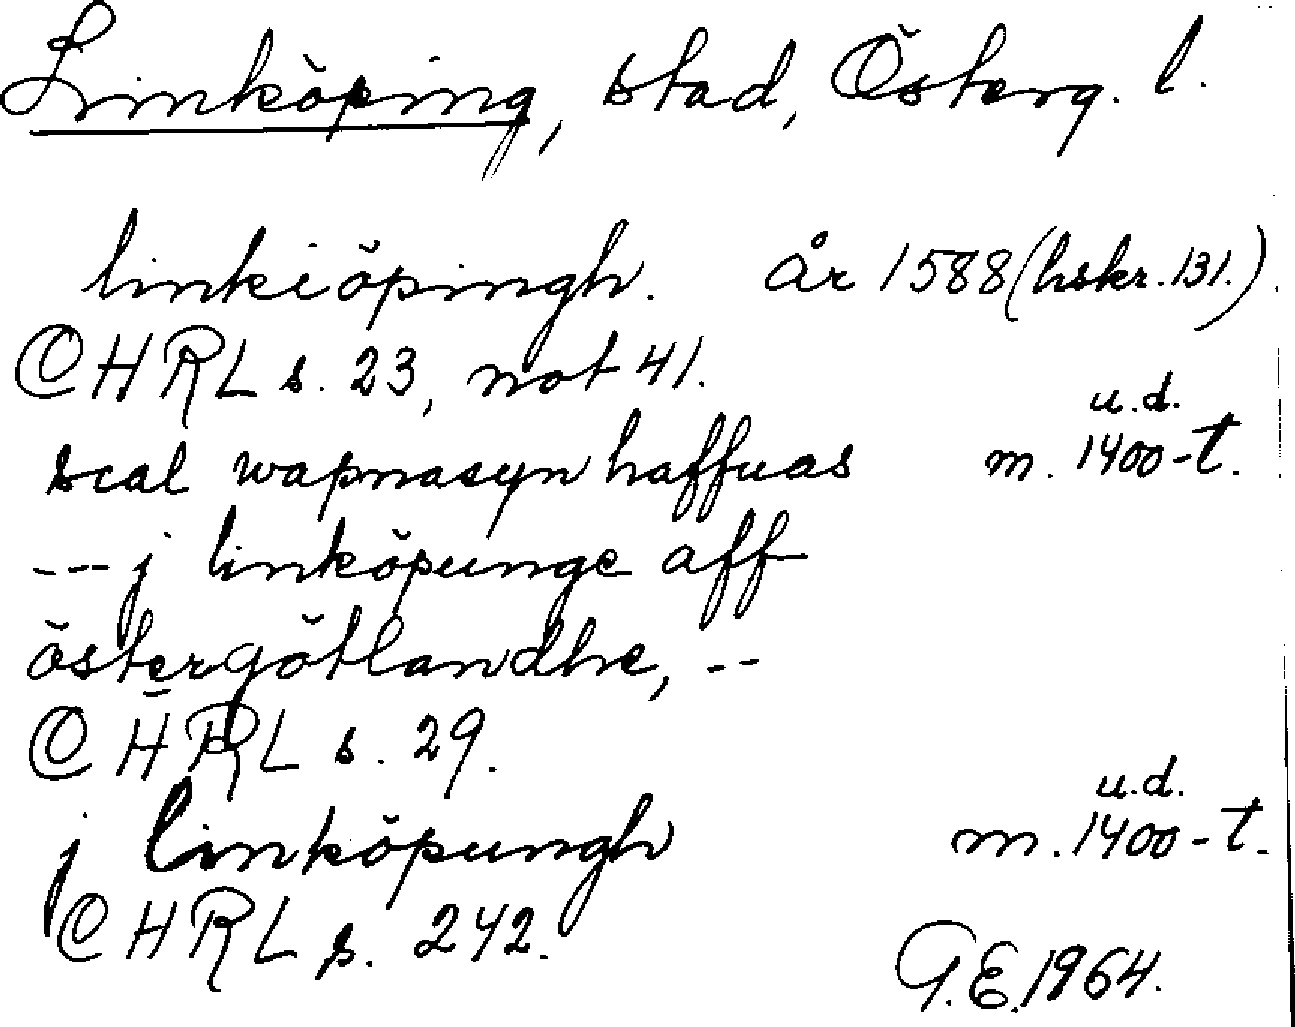 Linköping, stad, Österg. l.
linkiöpingh. År 1588 (hskr. 131.).
CHRL s. 23, not 41.
u.d.
scal wapnasyn haffuas m. 1400-t.
--- j linköpunge aff
östergötlandhe, --
CHRL s. 29.
u.d.
j linköpungh m. 1400-t.
CHRL s. 242.
G.E. 1964.